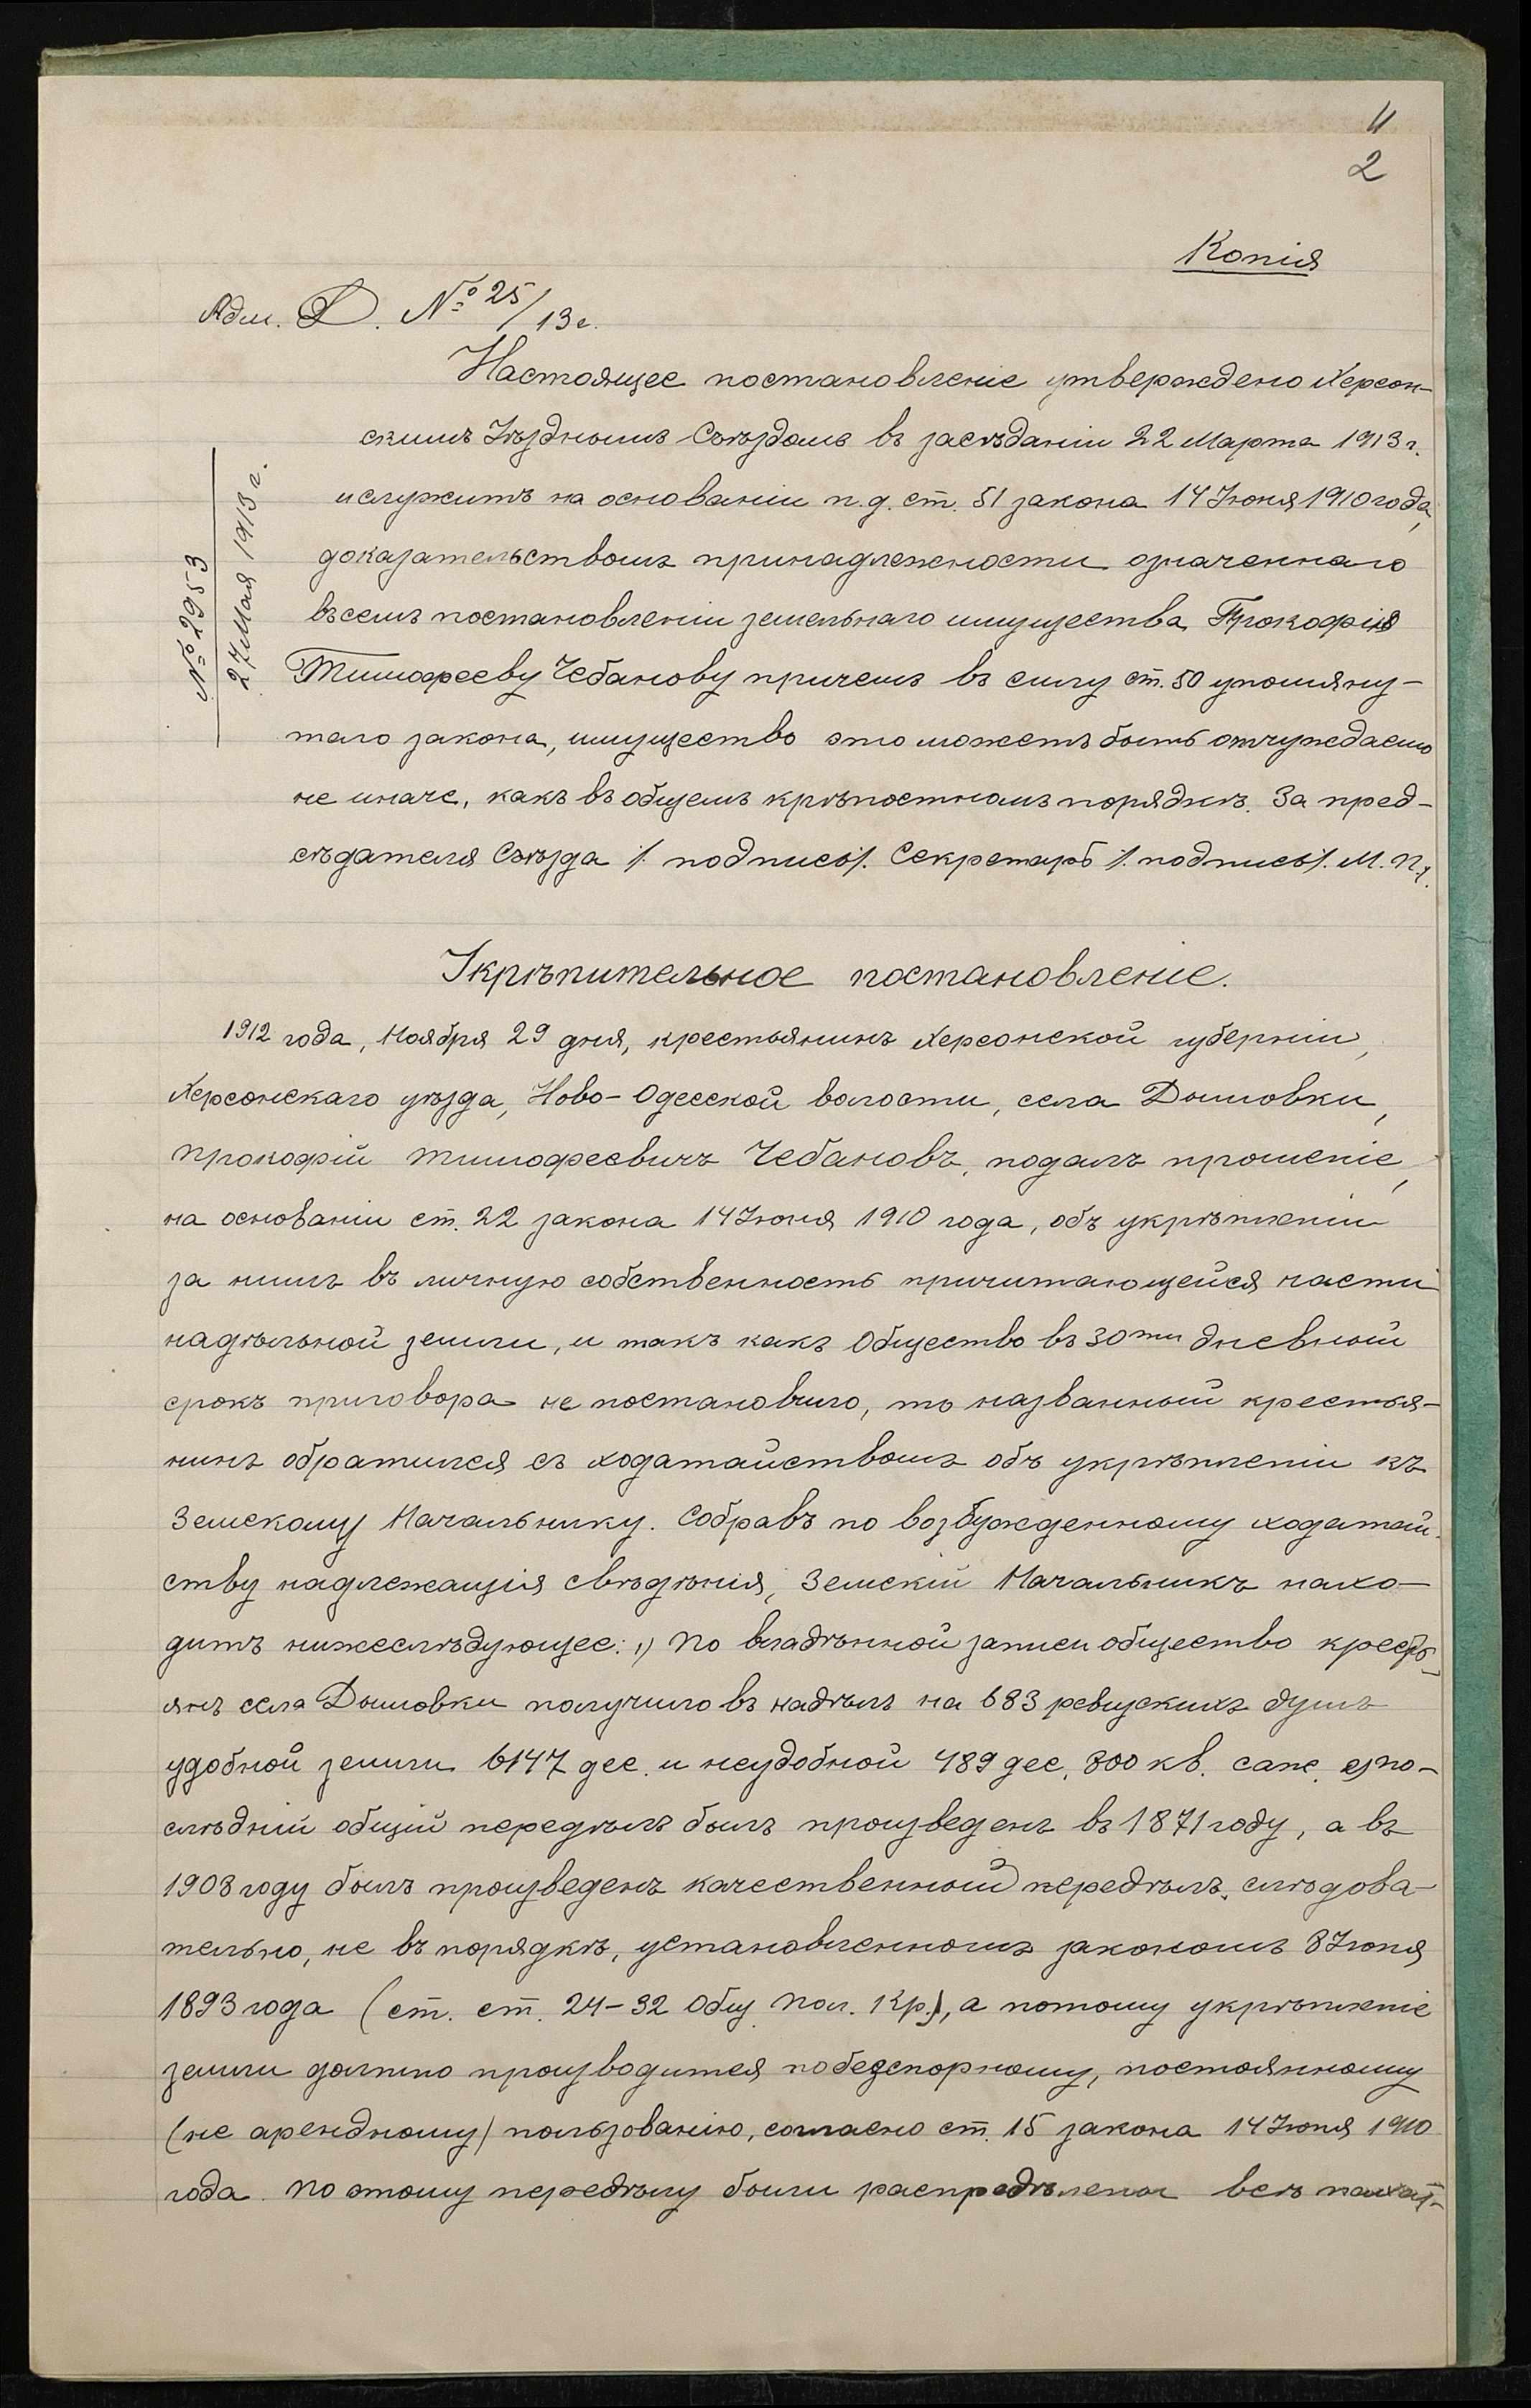 2
Копія
Адм. Д. № 25/13 г.
Настоящее постановленіе утверждено Херсон-
скимъ Уѣзднымъ Съѣздомъ въ засѣданіи 22 Марта 1913 г.
и служитъ на основаніи п. д. ст. 51 закона 14 Іюня 1910 года,
доказательствомъ принадлежности означеннаго
въ семъ постановленіи земельнаго имущества Прокофію
Тимофееву Чебанову причемъ въ силу ст. 50 упомяну-
таго закона, имущество это можетъ быть отчуждаемо
не иначе, какъ въ общемъ крѣпостномъ порядкѣ. За пред-
сѣдателя Съѣзда /. подпись/. Секретарь /. подпись/. М. П.
№ 2953
27 Мая 1913 г.
Укрѣпительное постановленіе.
1912 года, Ноября 29 дня, крестьянинъ Херсонской губерніи,
Херсонскаго уѣзда, Ново-Одесской волости, села Дымовки,
Прокофій Тимофеевичъ Чебановъ, подалъ прошеніе,
на основаніи ст. 22 закона 14 Іюня 1910 года, объ укрѣпленіи
за нимъ въ личную собственность причитающейся части
надѣльной земли, и такъ какъ Общество въ 30ти дневный
срокъ приговора не постановило, то названный крестья-
нинъ обратился съ ходатайствомъ объ укрѣпленіи къ
Земскому Начальнику. Собравъ по возбужденному ходатай-
ству надлежащія свѣдѣнія, Земскій Начальникъ нахо-
дитъ нижеслѣдующее: 1) По владѣнной записи общество кресть-
янъ села Дымовки получило въ надѣлъ на 683 ревизскихъ душъ
удобной земли 6147 дес. и неудобной 489 дес. 300 кв. саж. 2) по-
слѣдній общій передѣлъ былъ произведенъ въ 1871 году, а въ
1908 году былъ произведенъ качественный передѣлъ, слѣдова-
тельно, не въ порядкѣ, установленномъ закономъ 8 Іюня
1893 года (ст. ст. 24-32 Общ. Пол. Кр.), а потому укрѣпленіе
земли должно производится по безспорному, постоянному
(не арендному) пользованію, согласно ст. 15 закона 14 Іюня 1910
года. По этому передѣлу были распредѣлены всѣ пахат-